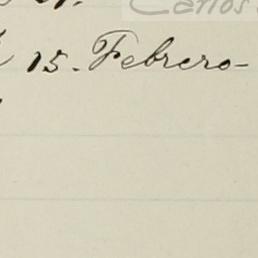 Carlos
15. Febrero-